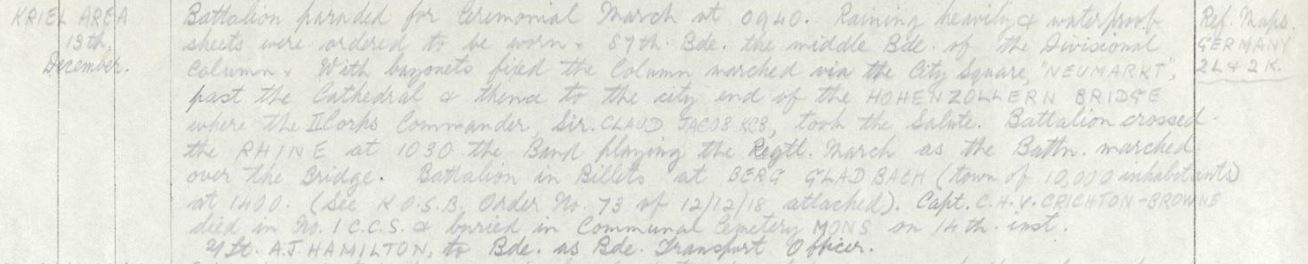 KRIEL AREA
13th,
December.
Battalion paraded for Ceremonial March at 0940. Raining heavily & waterproof
sheets were ordered to be worn. 87th. Bde. the middle Bde. of the Divisional
Column. With bayonets fixed the Column marched via the City Square, "NEUMARKT",
past the Cathedral & thence to the city end of the HOHENZOLLERN BRIDGE
where the II Corps Commander, Sir. CLAUD JACOB KCB, took the Salute. Battalion crossed
the RHINE at 1030 the Band playing the Regtl. March as the Battn. marched
over the Bridge. Battalion in Billets at BERG GLADBACH (town of 10,000 inhabitants)
at 1400. (See K.O.S.B. Order No. 73 of 12/12/18 attached). Capt. C.H.V. CRICHTON-BROWNE
died in No. 1 C.C.S. & buried in Communal Cemetery MONS on 14th. inst.
2/Lt. A.J. HAMILTON, to Bde. as Bde. Transport Officer.
Ref. Maps.
GERMANY
2L & 2K.